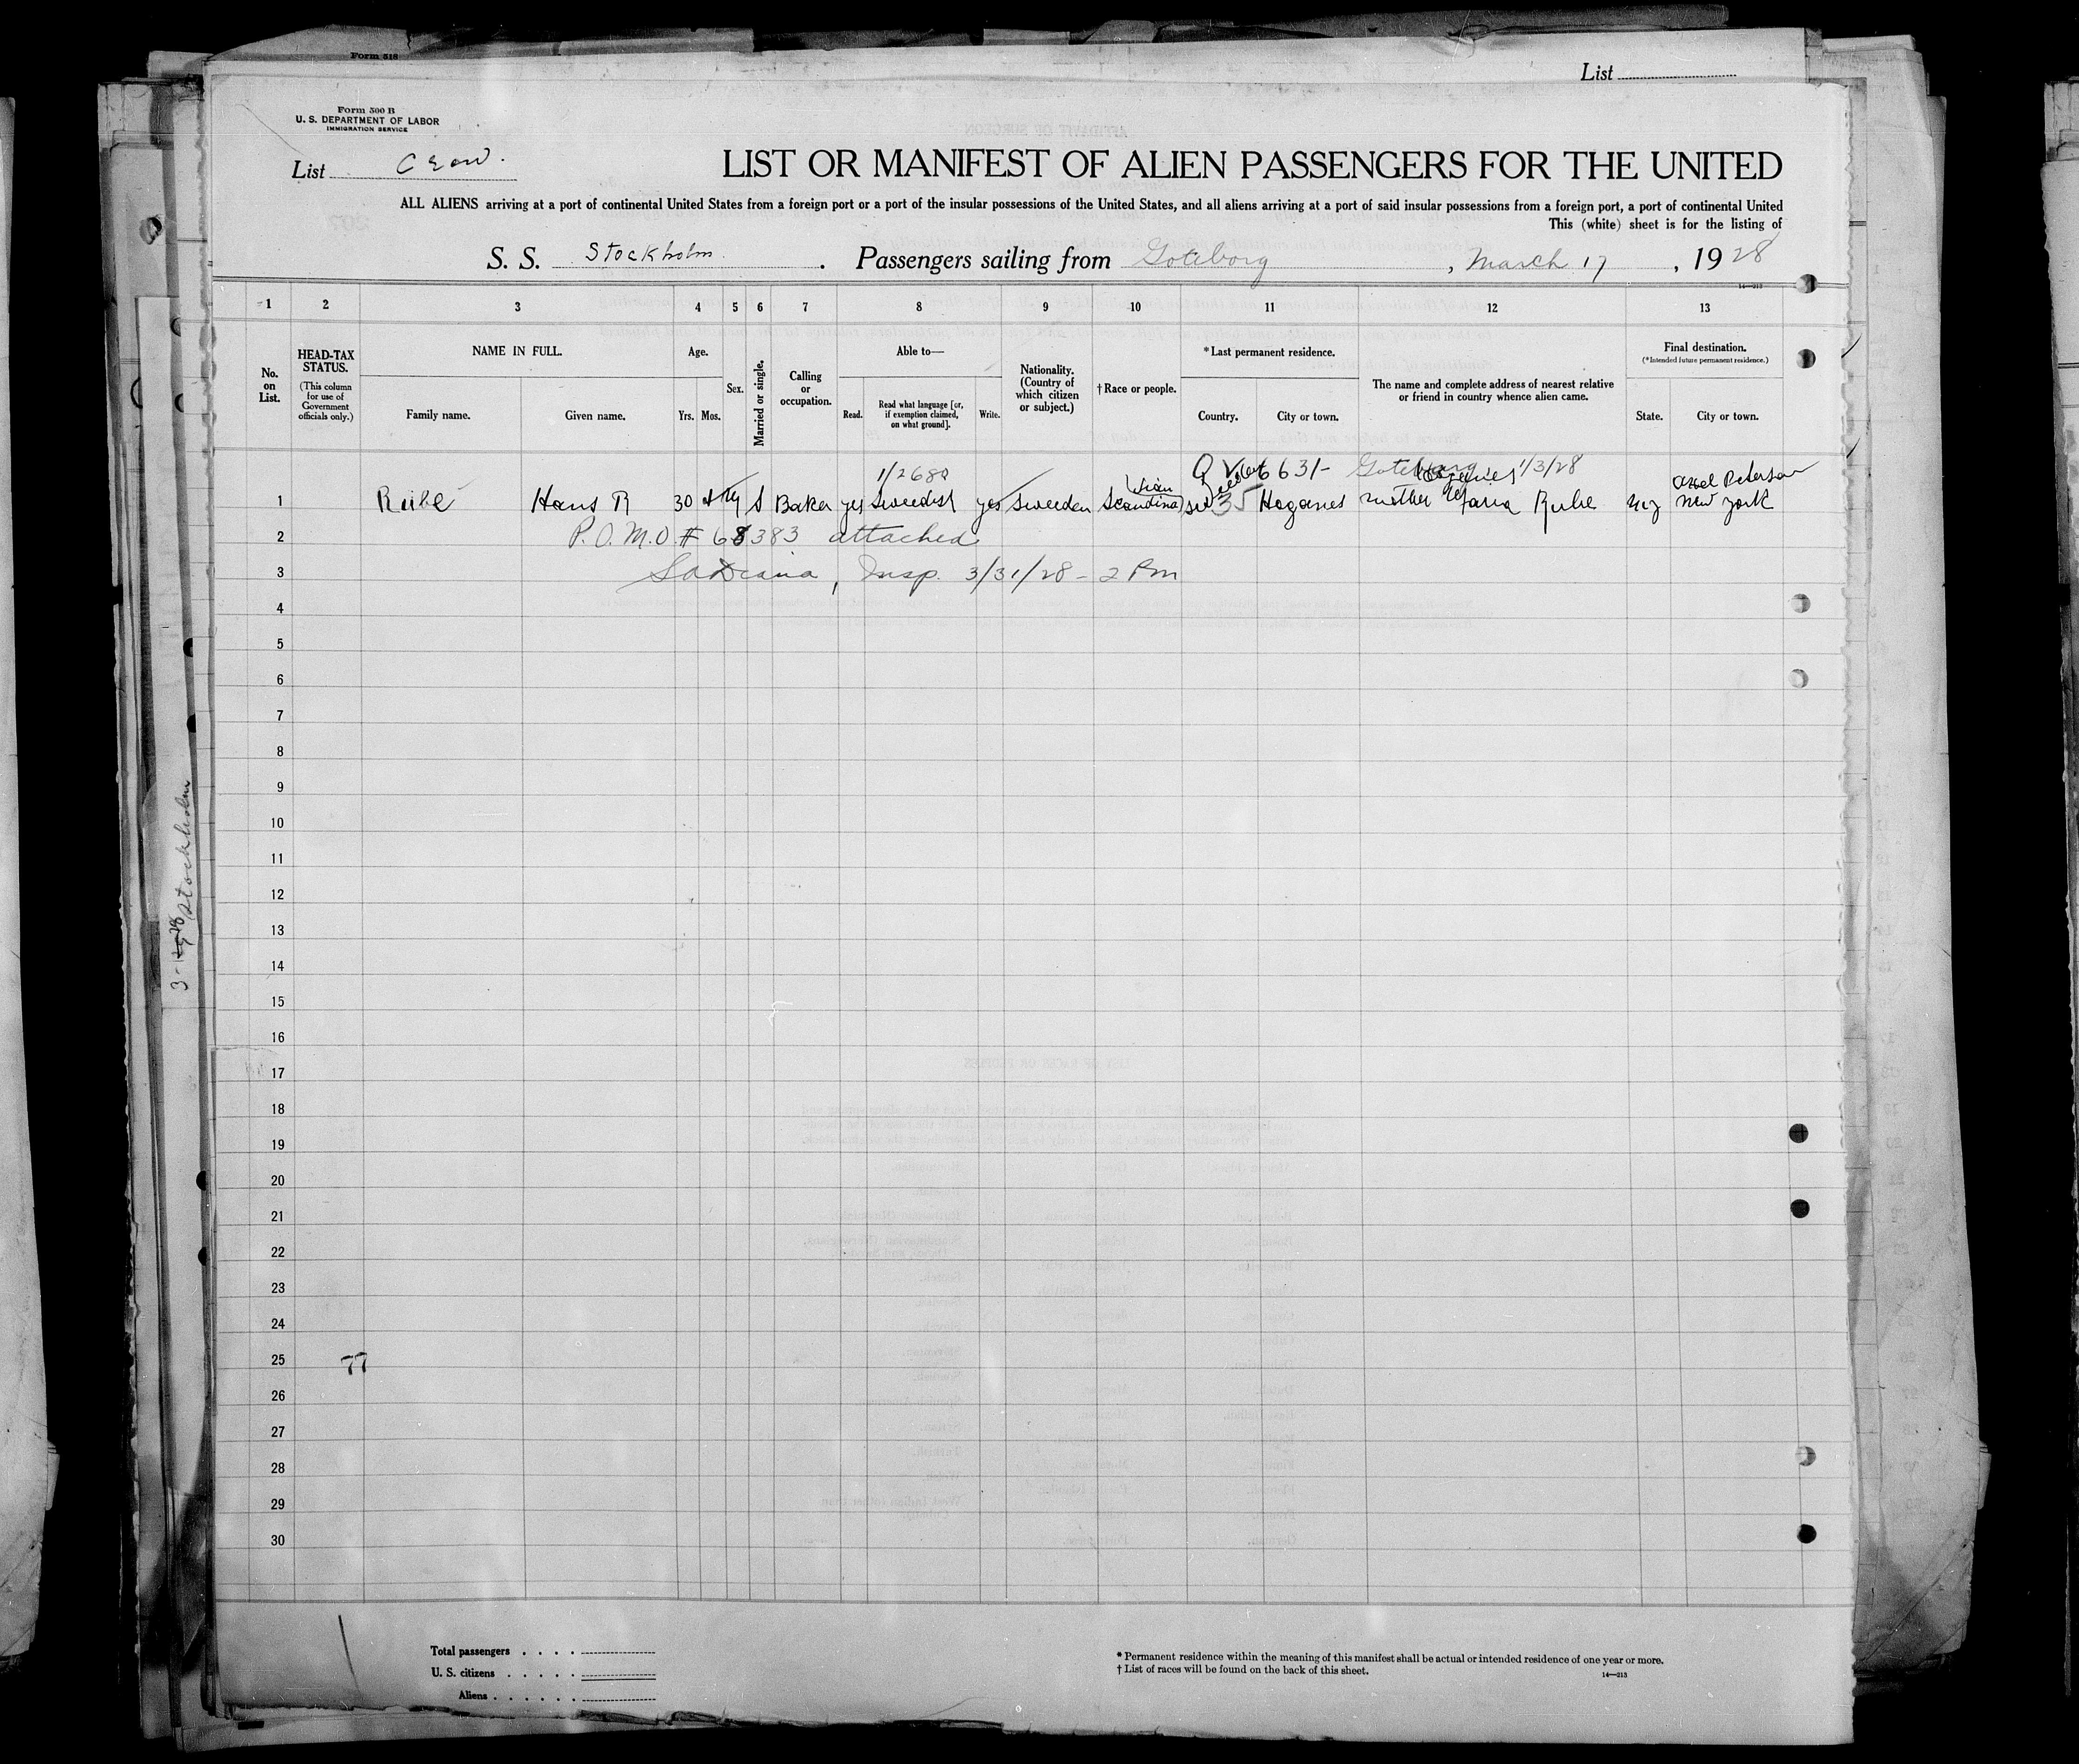 Form 518
List
Form 500 B
U. S. DEPARTMENT OF LABOR
IMMIGRATION SERVICE
List Crew.
LIST OR MANIFEST OF ALIEN PASSENGERS FOR THE UNITED
ALL ALIENS arriving at a port of continental United States from a foreign port or a port of the insular possessions of the United States, and all aliens arriving at a port of said insular possessions from a foreign port, a port of continental United
This (white) sheet is for the listing of
S. S. Stockholm. Passengers sailing from Goteborg, March 17, 1928
14—213
1 2 3 4 5 6 7 8 9 10 11 12 13
No. on List.
HEAD-TAX STATUS.
(This column for use of Government officials only.)
NAME IN FULL.
Family name. Given name.
Age.
Yrs. Mos.
Sex.
Married or single.
Calling or occupation.
Able to—
Read. Read what language [or, if exemption claimed, on what ground]. Write.
Nationality. (Country of which citizen or subject.)
† Race or people.
* Last permanent residence.
Country. City or town.
The name and complete address of nearest relative or friend in country whence alien came.
Final destination.
(*Intended future permanent residence.)
State. City or town.
1/2680 6631- Goteborg 1/3/28
Axel Peterson
1 Rube Hans R 30 M S Baker yes Swedish yes Sweden Scandinavian 35 Hoganes mother Maria Rube NY New York
2 P.O. M.O # 68383 attached
3 Insp. 3/31/28 - 2 Pm
4
5
6
7
8
9
10
11
12
13
14
15
16
17
18
19
20
21
22
23
24
25 77
26
27
28
29
30
Stockholm
Total passengers . . . .
U. S. citizens . . . . .
Aliens . . . . . .
* Permanent residence within the meaning of this manifest shall be actual or intended residence of one year or more.
† List of races will be found on the back of this sheet.
14—213